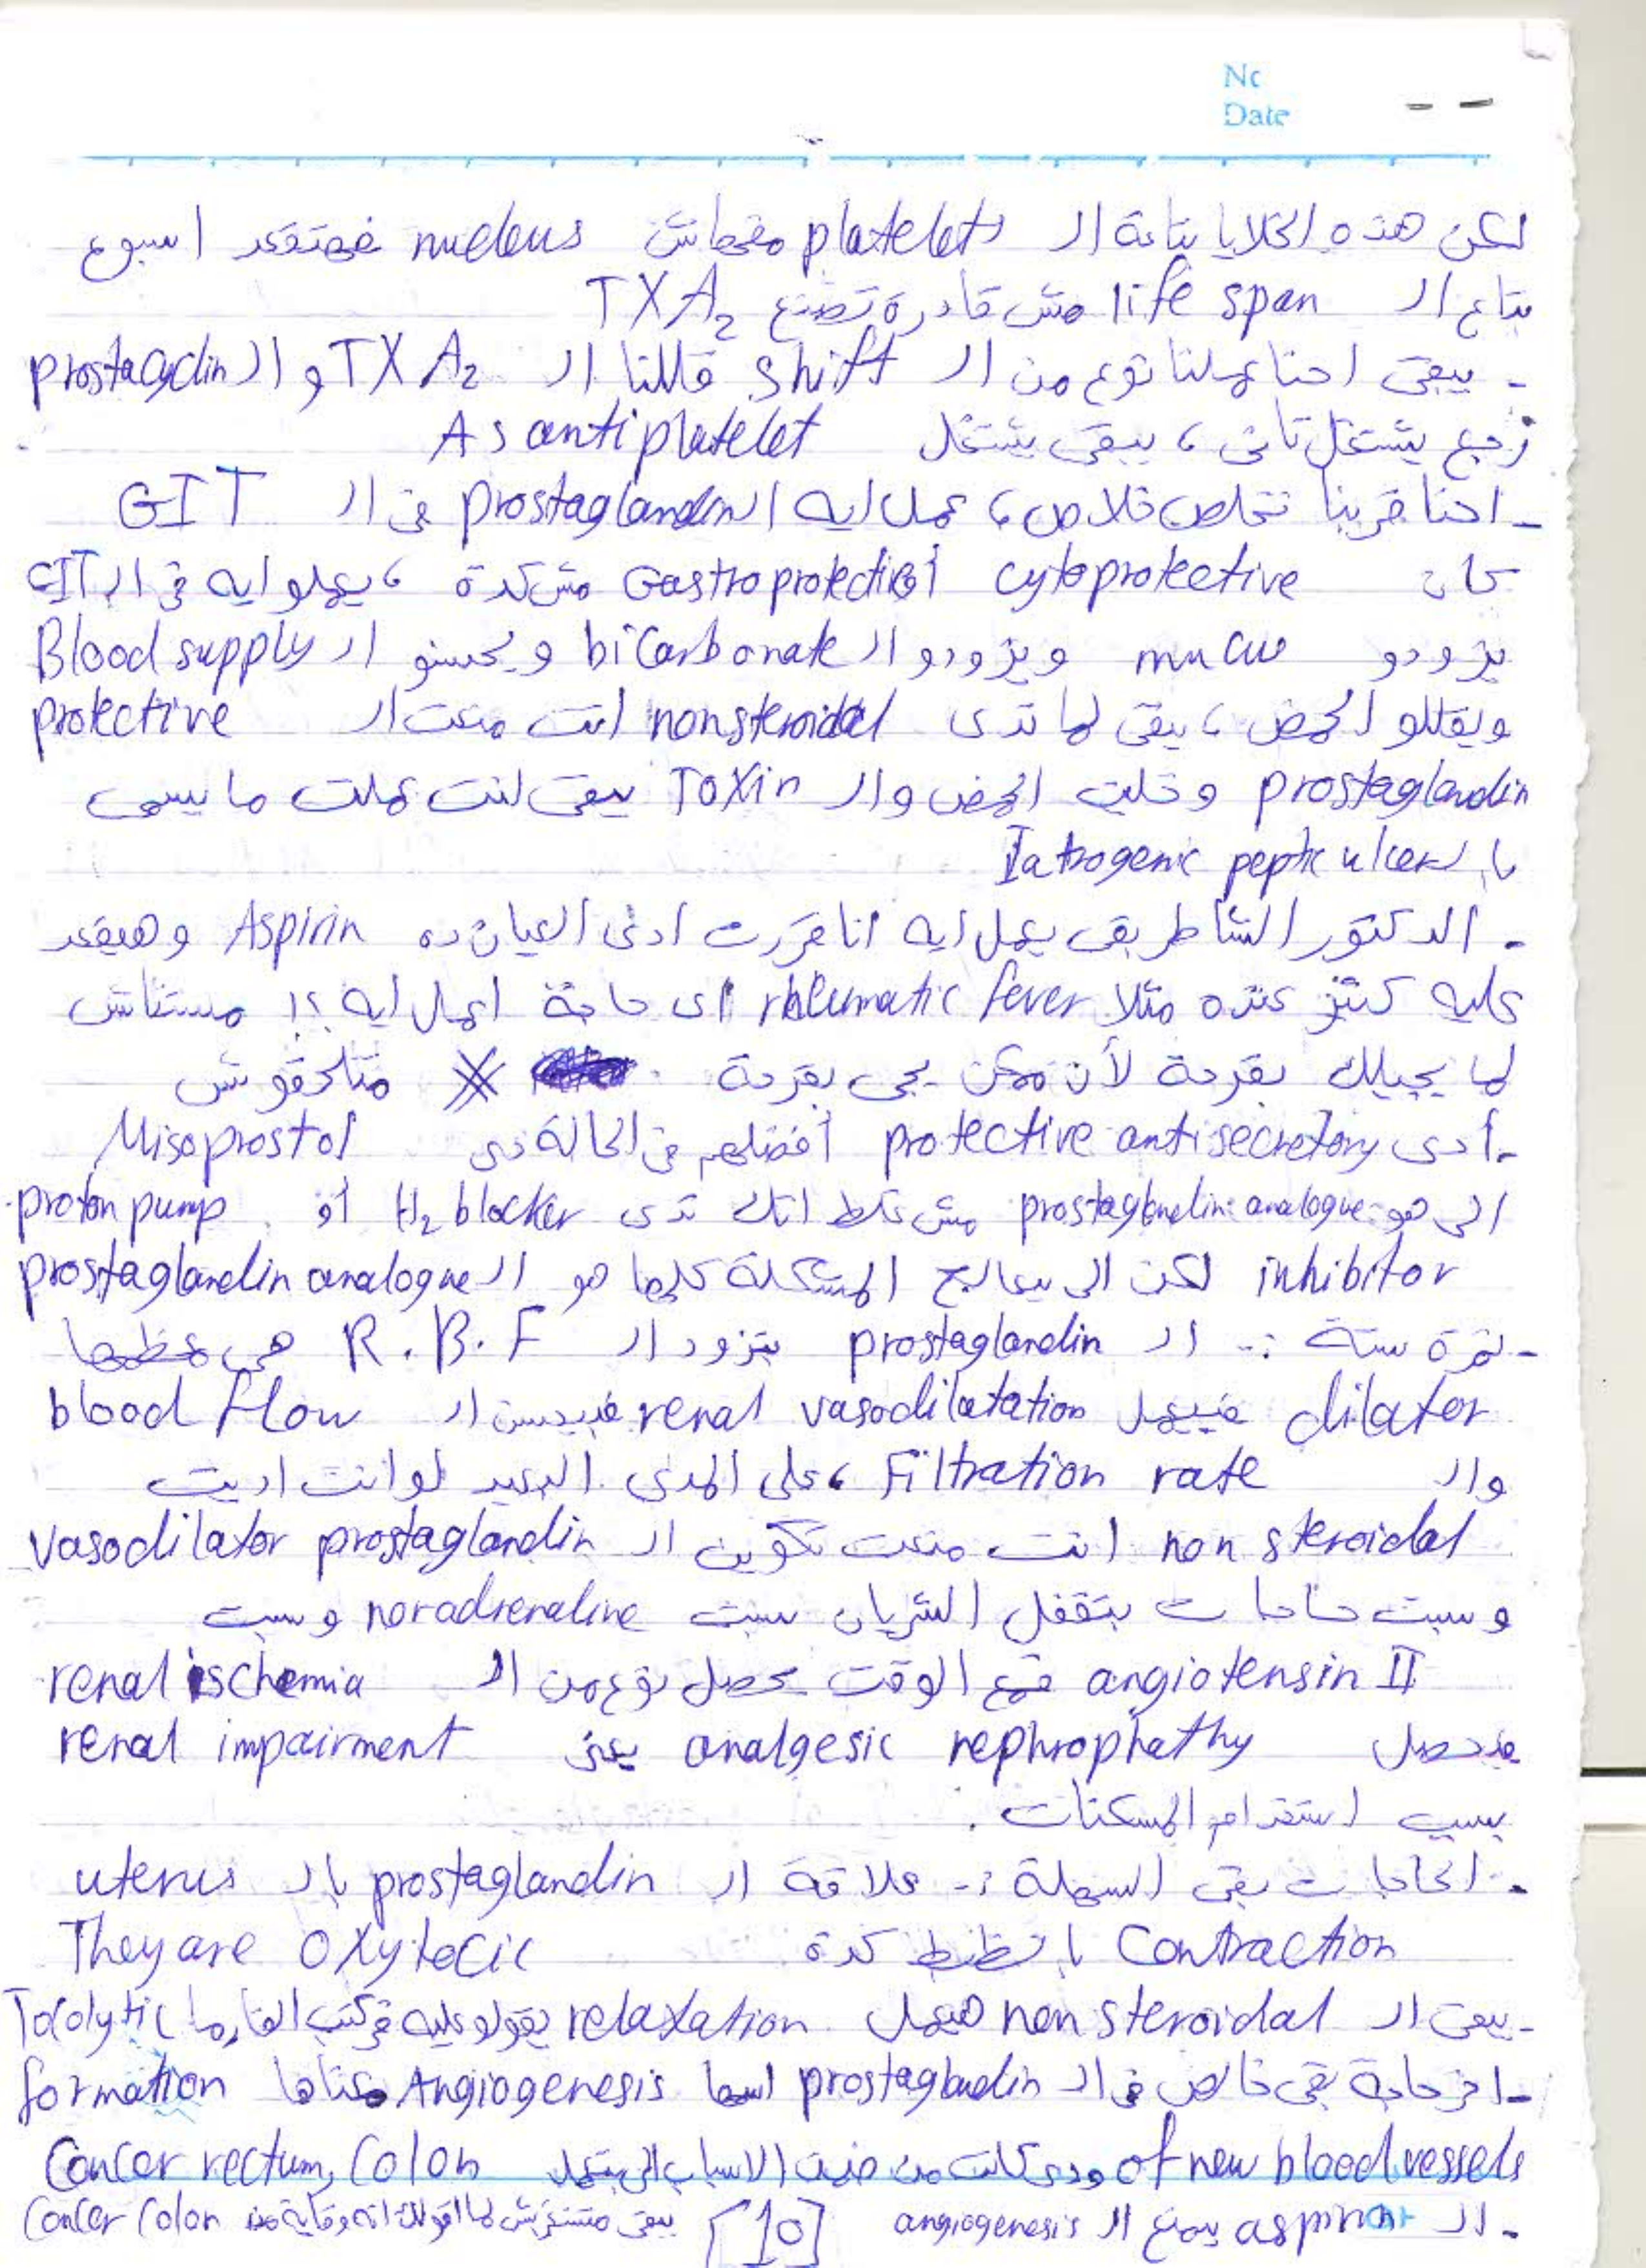 No
Date
لكن هذه الخلايا بتاعة ال platelets مفهاش nucleus فهتقعد اسبوع
بتاع ال life span مش قادرة تصنع TXA2
- يبقى احنا عملنا نوع من ال shift قللنا ال TXA2 و ال prostacyclin
رجع يشتغل تانى ، يبقى يشتغل As antiplatelet
- احنا قربنا نخلص خلاص ، عمل ايه ال prostaglandin فى ال GIT
كان cytoprotective أو Gastroprotective مش كدة ، يعملو ايه فى ال GIT
يزودو mucus ويزودو ال bicarbonate ويحسنو ال Blood supply
ويقللو الحمض ، يبقى لما تدى nonsteroidal انت منعت ال protective
prostaglandin وخليت الحمض وال Toxin يبقى انت عملت ما يسمى
بال Iatrogenic peptic ulcer
- الدكتور الشاطر بقى يعمل ايه انا قررت ادى العيان ده Aspirin وهيقعد
عليه كتير عنده مثلا rheumatic fever اى حاجة اعمل ايه ؟! مستناش
لما يجيلك بقرحة لأن ممكن يجى بقرحة متلحقوش
- أدى protective antisecretory أفضلهم فى الحالة دى Misoprostol
الى هو prostaglandin analogue مش غلط انك تدى H2 blocker أو proton pump
inhibitor لكن الى بيعالج المشكلة كلها هو ال prostaglandin analogue
- نمرة ستة :- ال prostaglandin بتزود ال R.B.F هى معظمها
dilator فبيعمل renal vasodilatation فبيحسن ال blood flow
وال Filtration rate ، على المدى البعيد لو انت اديت
non steroidal انت منعت تكوين ال vasodilator prostaglandin
وسبت حاجات بتقفل الشريان سبت noradrenaline وسبت
angiotensin II فمع الوقت يحصل نوع من ال renal ischemia
فيحصل analgesic nephrophathy يعنى renal impairment
بسبب استخدام المسكنات .
- الحاجات بقى السهلة :- علاقة ال prostaglandin بال uterus
Contraction بالظبط كدة They are oxytocic
- يبقى ال non steroidal هيعمل relaxation يقولو عليه فى كتب الفارما Tocolytic
- اخر حاجة بقى خالص فى ال prostaglandin اسمها Angiogenesis معناها formation
of new blood vessels ودى كانت من ضمن الاسباب الى بتعمل Cancer rectum, Colon
- ال aspirin بيمنع ال angiogenesis يبقى متستغربش لما اقولك انه وقاية من Cancer Colon
[10]